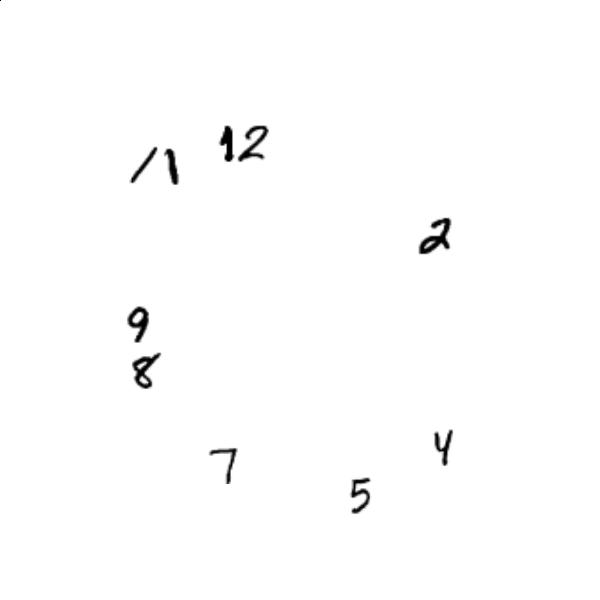 12
11
2
9
8
4
7
5